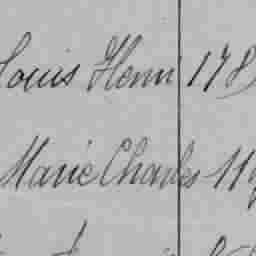 Louis Henri 178
Marie Charles 119